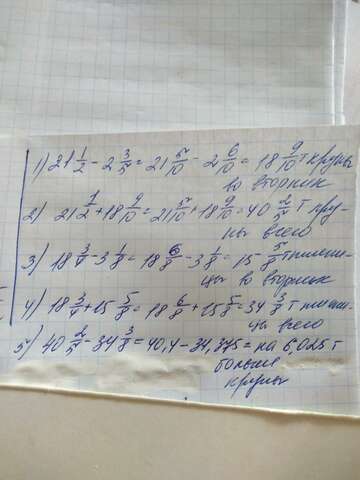 1) 21 1/2 - 2 3/5 = 21 5/10 - 2 6/10 = 18 9/10 т крупы
во вторник
2) 21 1/2 + 18 9/10 = 21 5/10 + 18 9/10 = 40 2/5 т кру-
пы всего
3) 18 3/4 - 3 1/8 = 18 6/8 - 3 1/8 = 15 5/8 т пшени-
цы во вторник
4) 18 3/4 + 15 5/8 = 18 6/8 + 15 5/8 = 34 3/8 т пшени-
цы всего
5) 40 2/5 - 34 3/8 = 40,4 - 34,375 = на 6,025 т
больше
крупы